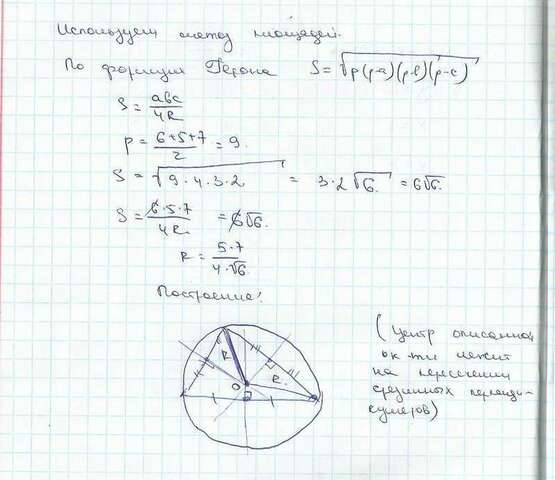 Используем метод площадей.
По формуле Герона S = √p(p-a)(p-b)(p-c)
S = abc/4R
p = 6+5+7/2 = 9.
S = √9·4·3·2 = 3·2√6 = 6√6.
S = 6·5·7/4R = 6√6.
R = 5·7/4·√6.
Построение:
R
R.
O
(Центр описанной
ок-ти лежит
на пересечении
срединных перпенди-
куляров)